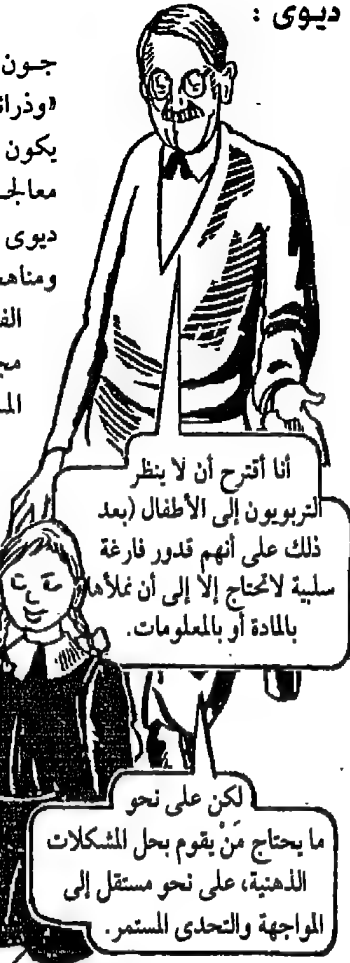 ديوى :
جـون
«وذرائ
يكون
معالجـ
ديوى
ومناهـ
الفـ
مجـ
المـ
أنا أقترح أن لا ينظر
التربويون إلى الأطفال (بعد
ذلك على أنهم قدور فارغة
سلبية لاتحتاج إلا إلى أن نملأها
بالمادة أو بالمعلومات.
لكن على نحو
ما يحتاج مَنْ يقوم بحل المشكلات
الذهنية، على نحو مستقل إلى
المواجهة والتحدى المستمر.